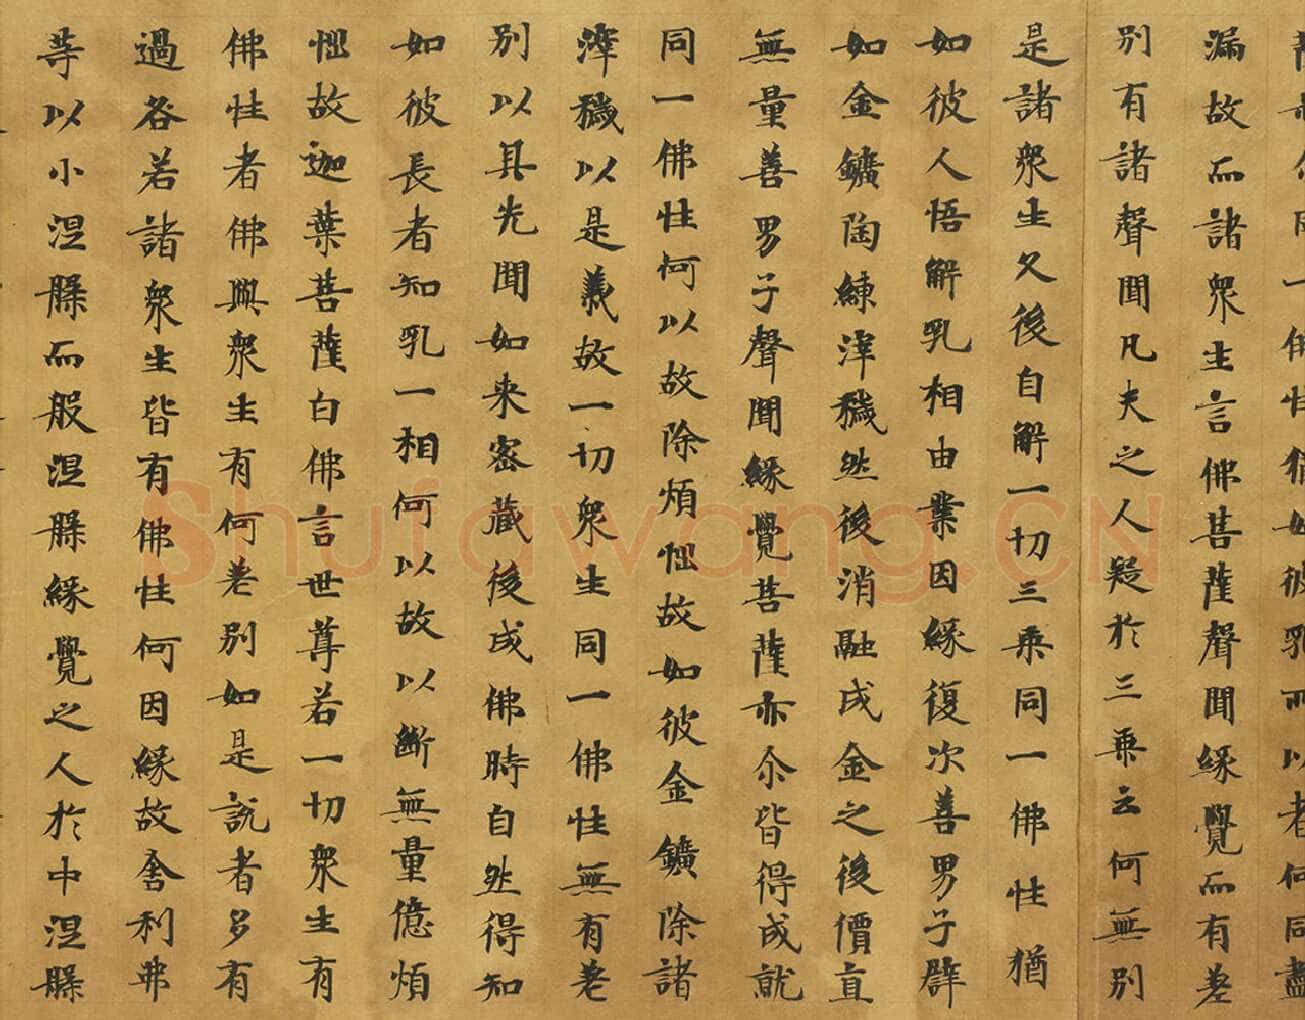 一佛性猶如彼乳所以者何同盡
漏故而諸衆生言佛菩薩聲聞緣覺而有差
別有諸聲聞凡夫之人疑於三乘云何無別
是諸衆生久後自解一切三乘同一佛性猶
如彼人悟解乳相由業因緣復次善男子譬
如金鑛陶練滓穢然後消融成金之後價直
無量善男子聲聞緣覺菩薩亦尒皆得成就
同一佛性何以故除煩惱故如彼金鑛除諸
滓穢以是義故一切衆生同一佛性無有差
別以其先聞如来密藏後成佛時自然得知
如彼長者知乳一相何以故以斷無量億煩
惱故迦葉菩薩白佛言世尊若一切衆生有
佛性者佛與衆生有何差別如是說者多有
過咎若諸衆生皆有佛性何因緣故舍利弗
等以小涅槃而般涅槃緣覺之人於中涅槃
Shufawang.CN